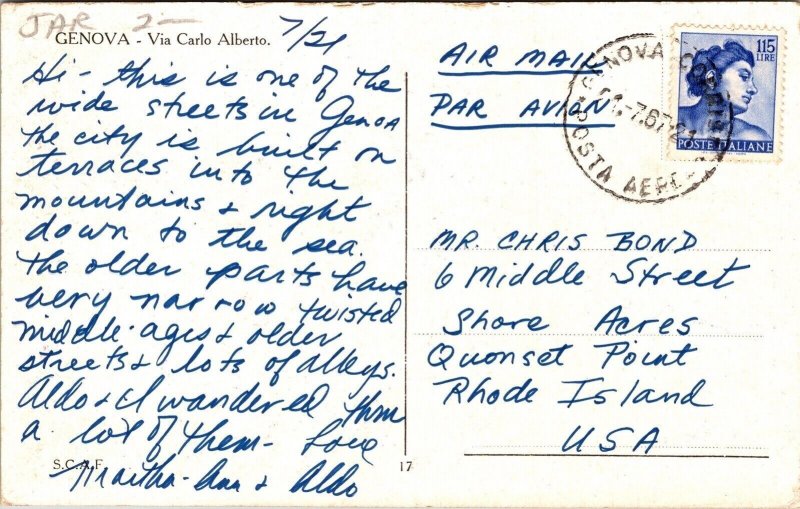 JAR 2-
GENOVA - Via Carlo Alberto.
7/21
Hi - this is one of the
wide streets in Genoa
the city is built on
terraces into the
mountains & right
down to the sea.
The older parts have
very narrow twisted
middle-ages & older
streets & lots of alleys.
Aldo & I wandered thru
a lot of them - Love
Martha-Ann & Aldo
S.C.A.F.
17
AIR MAIL
PAR AVION
GENOVA
7.67
POSTA AEREA
115
LIRE
POSTE ITALIANE
MR. CHRIS BOND
6 Middle Street
Shore Acres
Quonset Point
Rhode Island
USA